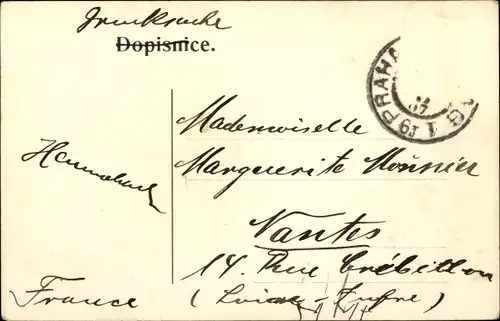 Drucksache
Dopisnice.
PRAHA
Mademoiselle
Marguerite Monnier
Nantes
14. Rue Crébillon
(Loire-Infre)
France